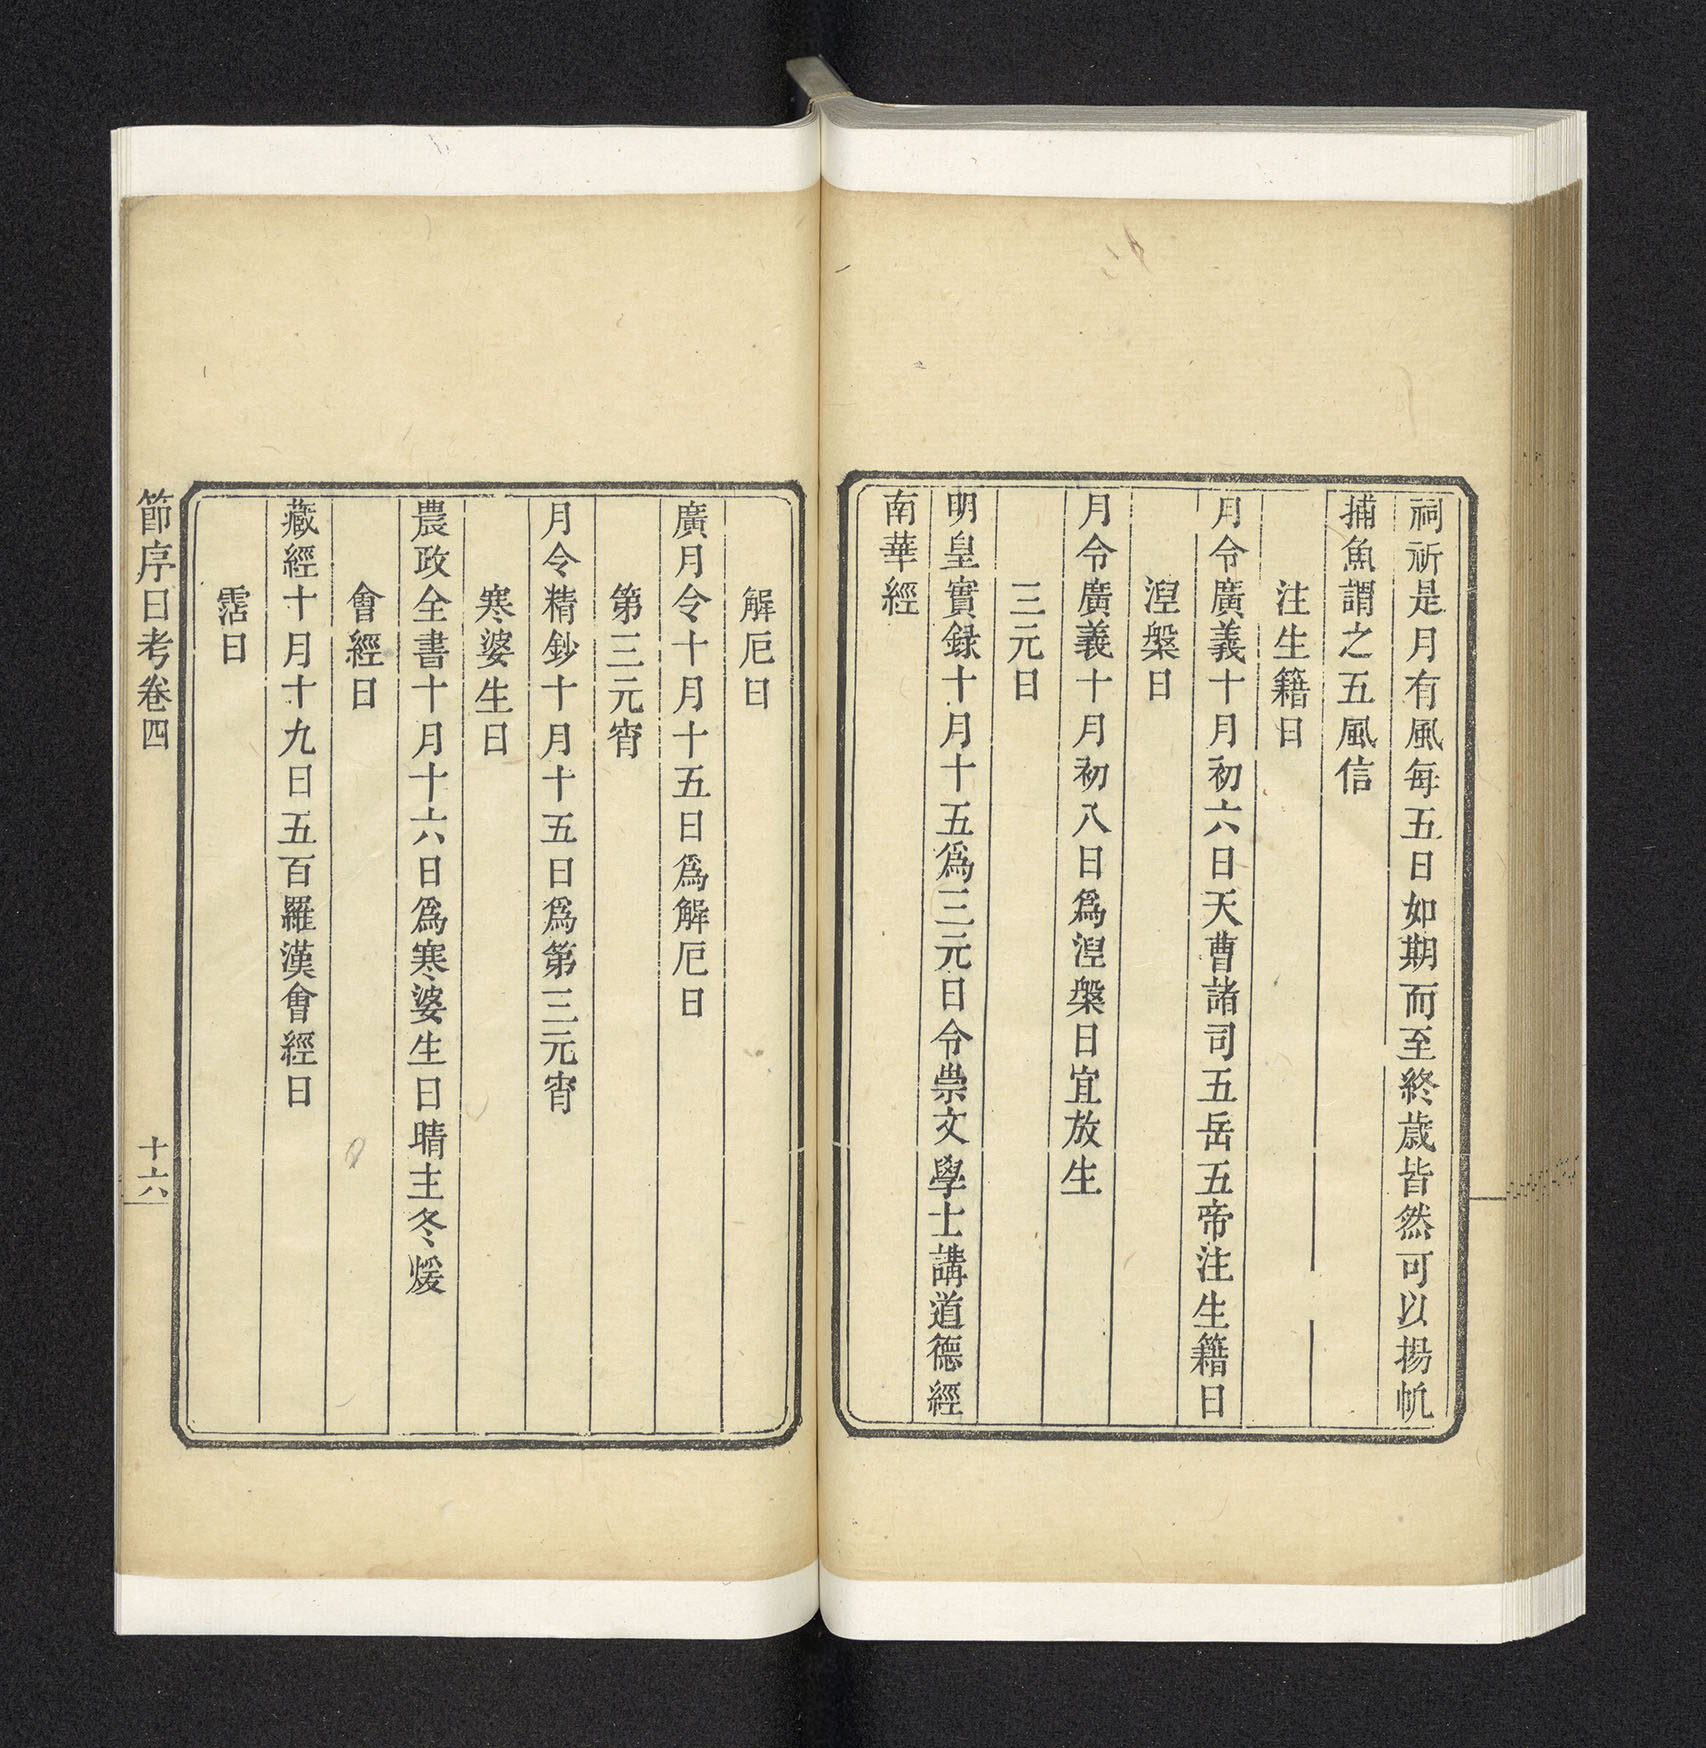 祠祈是月有風每五日如期而至終歲皆然可以揚帆
捕魚謂之五風信
注生籍日
月令廣義十月初六日天曹諸司五岳五帝注生籍日
湼槃日
月令廣義十月初八日爲湼槃日宜放生
三元日
明皇實録十月十五爲三元日令崇文學士講道德經
南華經
解厄日
廣月令十月十五日爲解厄日
第三元宵
月令精鈔十月十五日爲第三元宵
寒婆生日
農政全書十月十六日爲寒婆生日晴主冬煖
會經日
藏經十月十九日五百羅漢會經日
霑日
節序日考卷四
十六